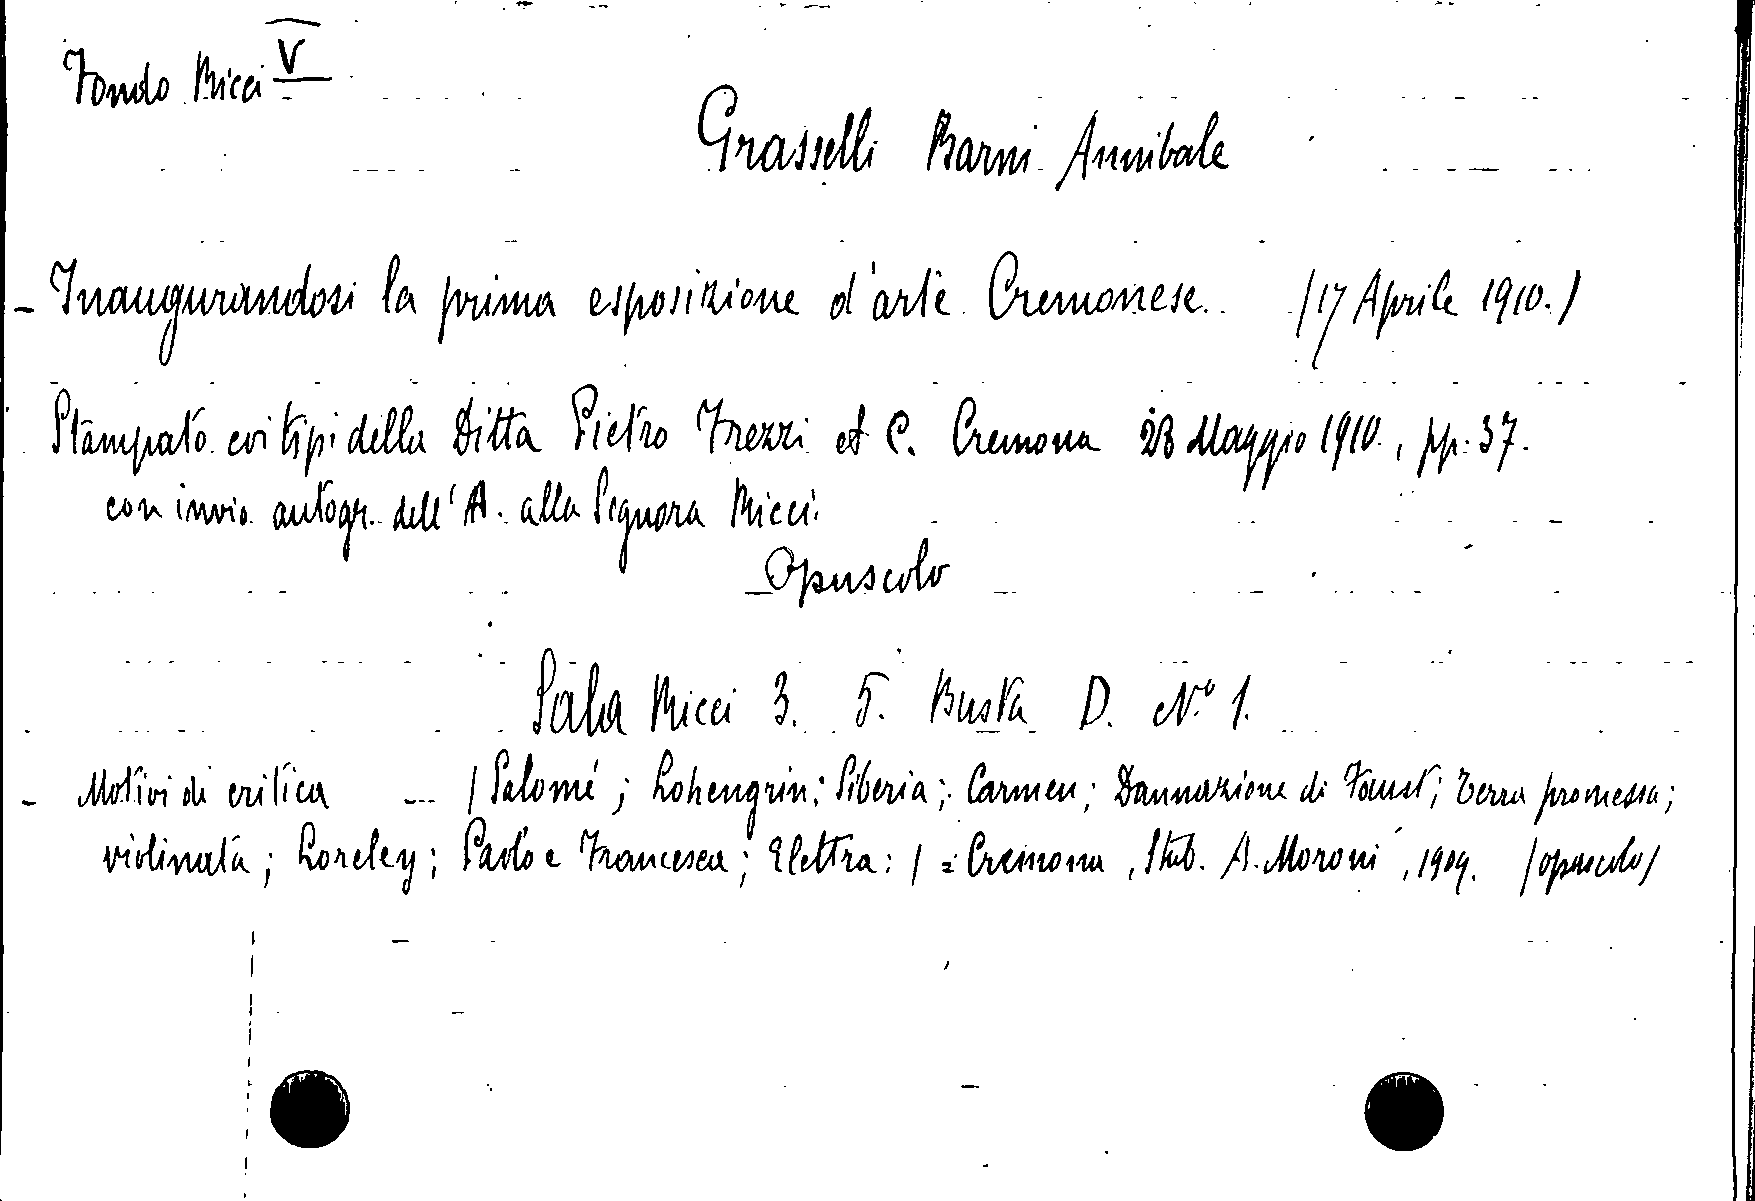 Fondo Ricci V
Grasselli Barni Annibale
- Inaugurandosi la prima esposizione d'arte Cremonese. /17 Aprile 1910./
Stampato coi tipi della Ditta Pietro Frezzi et C. Cremona 28 Maggio 1910., pp. 37.
con invio autogr. dell'A. alla Signora Ricci.
Opuscolo
Sala Ricci 3. 5. Busta D. N.° 1.
- Motivi di critica — /Salomé; Lohengrin; Siberia; Carmen; Dannazione di Faust; Terra promessa;
violinata; Loreley; Paolo e Francesca; Elettra:/ = Cremona, Stab. A. Moroni, 1909. /opuscolo/